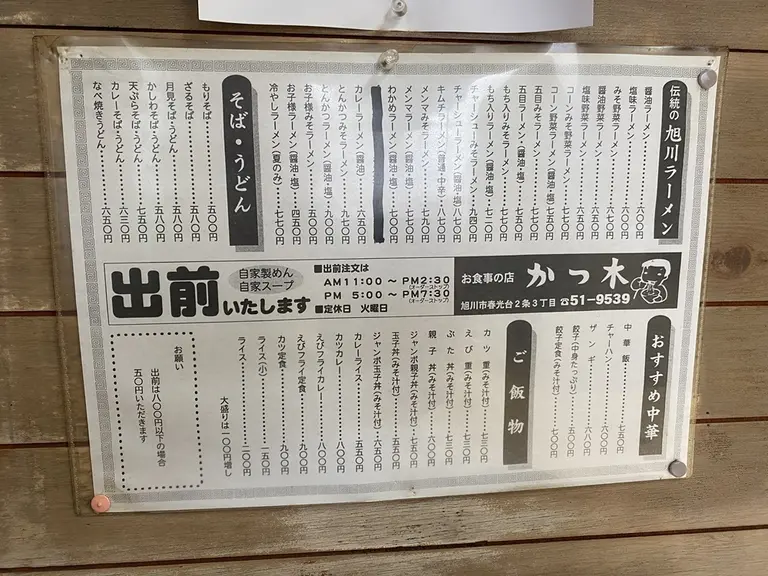 伝統の 旭川ラーメン
醤油ラーメン………六〇〇円
塩味ラーメン………六〇〇円
みそ野菜ラーメン………
醤油野菜ラーメン………
塩味野菜ラーメン………
コーンみそ野菜ラーメン………
コーン野菜ラーメン(醤油・塩)
五目みそラーメン………
五目ラーメン(醤油・塩)
もち入りみそラーメン………
もち入りラーメン(醤油・塩)
チャーシューみそラーメン………九四〇円
チャーシューラーメン(醤油・塩)八七〇円
キムチラーメン(普通・中辛)八七〇円
メンマみそラーメン………七七〇円
メンマラーメン(醤油・塩)七〇〇円
わかめラーメン(醤油・塩)七〇〇円
カレーラーメン(醤油)
とんかつみそラーメン………九七〇円
とんかつラーメン(醤油・塩)九〇〇円
お子様みそラーメン………五〇〇円
お子様ラーメン(醤油・塩)四五〇円
冷やしラーメン(夏のみ)七七〇円
そば・うどん
もりそば………五〇〇円
ざるそば………五五〇円
月見そば・うどん………五八〇円
かしわそば・うどん………五八〇円
天ぷらそば・うどん………七五〇円
カレーそば・うどん………六三〇円
なべ焼きうどん………六五〇円
お食事の店 かつ木
旭川市春光台2条3丁目 ☎51-9539
■出前注文は
AM11:00 ～ PM2:30
(オーダーストップ)
PM 5:00 ～ PM7:30
(オーダーストップ)
■定休日 火曜日
自家製めん
自家スープ
出前いたします
おすすめ中華
中華飯………七五〇円
チャーハン………六〇〇円
ザンギ………六八〇円
餃子(中身たっぷり)………五〇〇円
餃子定食(みそ汁付)………七〇〇円
ご飯物
カツ重(みそ汁付)………七三〇円
えび重(みそ汁付)………七三〇円
ぶた丼(みそ汁付)………七三〇円
親子丼(みそ汁付)………六〇〇円
ジャンボ親子丼(みそ汁付)・七五〇円
玉子丼(みそ汁付)………五五〇円
ジャンボ玉子丼(みそ汁付)・六五〇円
カレーライス………五五〇円
カツカレー………八〇〇円
えびフライカレー………八〇〇円
えびフライ定食………九〇〇円
カツ定食………九〇〇円
ライス(小)………一五〇円
ライス………二〇〇円
大盛りは一〇〇円増し
お願い
出前は八〇〇円以下の場合
五〇円いただきます